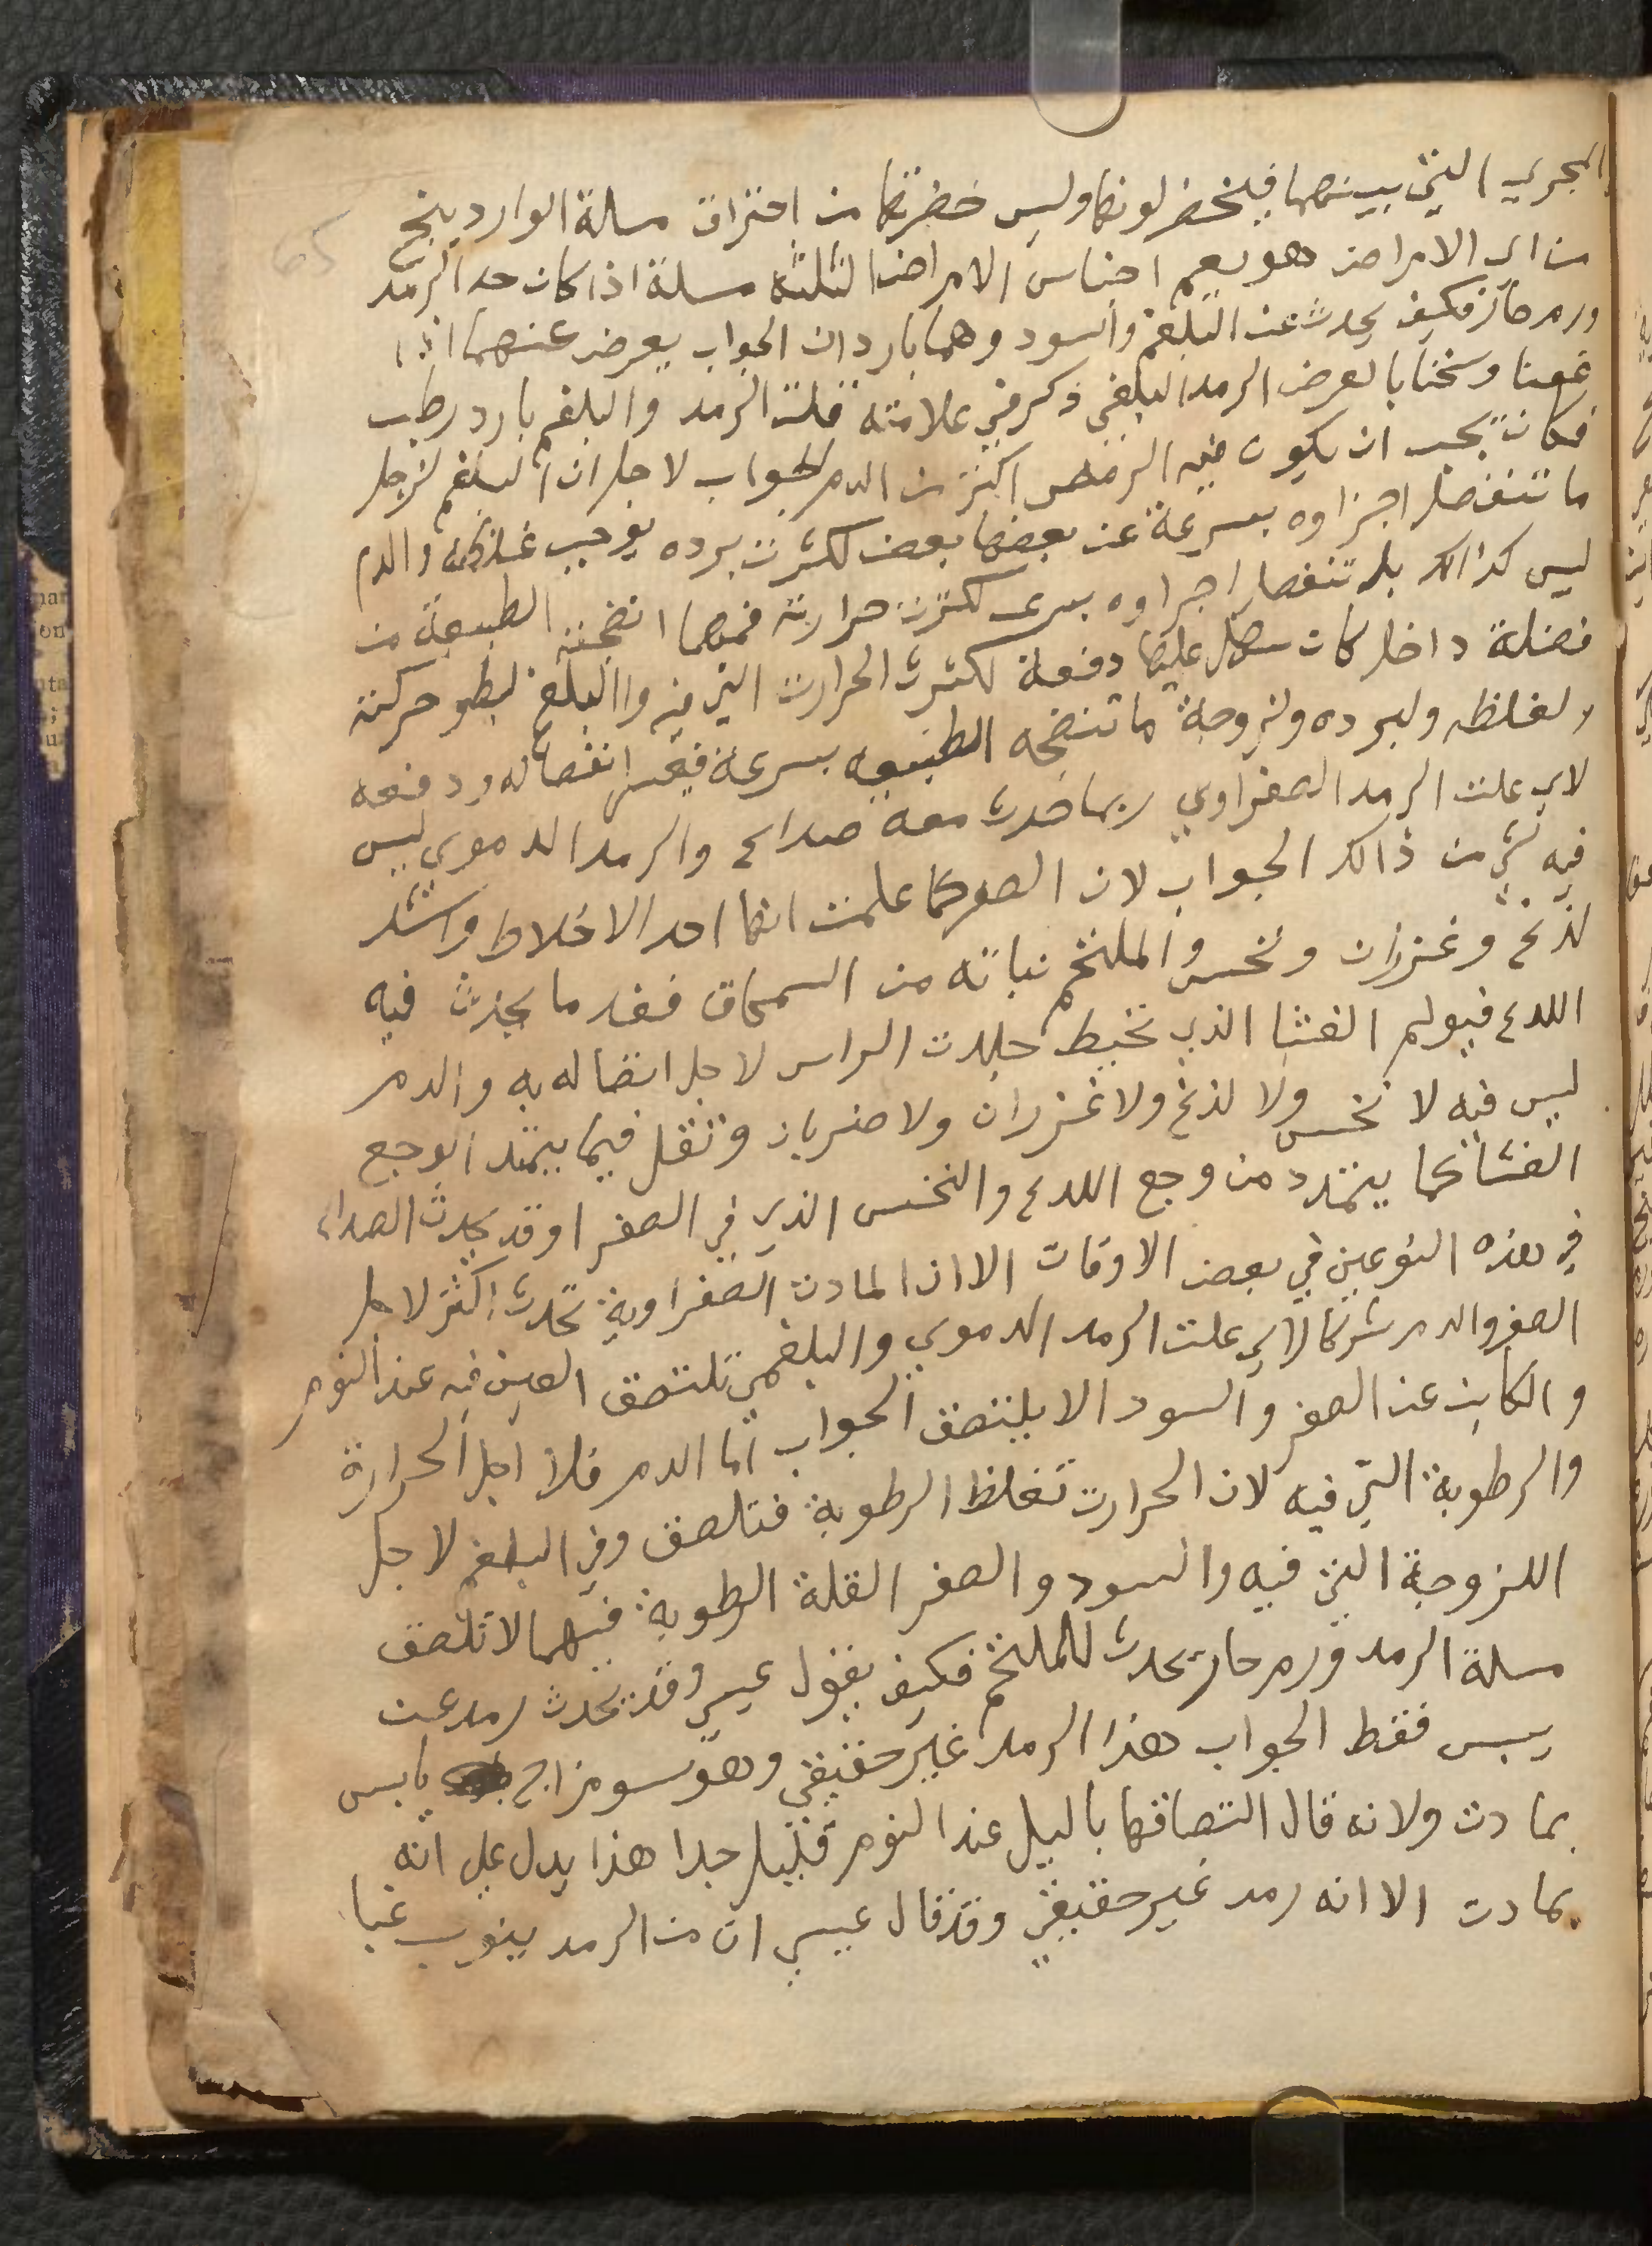 المجري التي بينهما فيخضر لونها وليس خضرتها من احتراق مسالة الوارد ينج
من اي الامراض هو يعم اجناس الامراض الثلثة مسلة اذا كان حد الرمد
ورم حار فكيف يحدث عن البلغم والسود وهما باردان الجواب يعرض عنهما اذا
عفنا وسخنا بالعرض الرمد البلغمي ذكر في علامته قلت الرمد والبلغم بارد رطب
فكان يجب ان يكون فيه الرمص اكثر من الدم الجواب لاجل ان البلغم لزجل
ما تنفصل اجزاوه بسرعة عن بعضها بعض لكثرت برده يوجب غلظه والدم
ليس كذالك بل تنفصل اجزاوه بسرى لكثرت حرارته فمهما انضجته الطبيعة من
فضلة داخل كان سهل عليها دفعة لكثرت الحرارت التي فيه واالبلغم لبطو حركته
ولغلظه ولبرده ولزوجة ما تنضجه الطبيعه بسرعة فيعسر انفصاله ودفعه
لاي علت الرمد الصفراوي ربما حدث معه صداع والرمد الدموي ليس
فيه شي من ذالك الجواب لان الصفر كما علمت انها احد الاخلاط واشد
لذع وغرزان ونخس والملتحم نباته من السمحاق فقد ما يحدث فيه
اللدع فيولم الغشا الذي تخيط جلدت الراس لاجل اتصاله به والدم
ليس فيه لا نخس ولا لذع ولا غرزان ولا ضربان وثقل فيما يمتد الوجع
الغشا كما يتمدد من وجع اللدع والنخس الذي في الصفر اوقد يحدث الصداع
في هذه النوعين في بعض الاوقات الا ان المادت الصفراوية تحدث اكثر لاجل
الصفر والدم شرتها لاي علت الرمد الدموي والبلغمي تلتصق العين فيه عند النوم
والكاين عن الصفر والسود الا يلتصق الجواب اما الدم فلا اجل الحرارة
والرطوبة التي فيه لان الحرارت تغلظ الرطوبة فتلصق وفي البلغم لاجل
اللزوجة التي فيه والسود والصفر القلة الرطوبة فيهما لا تلصق
مسلة الرمد ورم حار يحدث للملتحم فكيف يقول عيسى وقد يحدث رمد عن
يبس فقط الجواب هذا الرمد غير حقيقي وهو سو مزاج يابس
بمادت ولانه قال التصاقها باليل عند النوم قليل جدا هذا يدل على انه
بمادت الا انه رمد غير حقيقي وقد قال عيسى ان من الرمد ينوب غبا